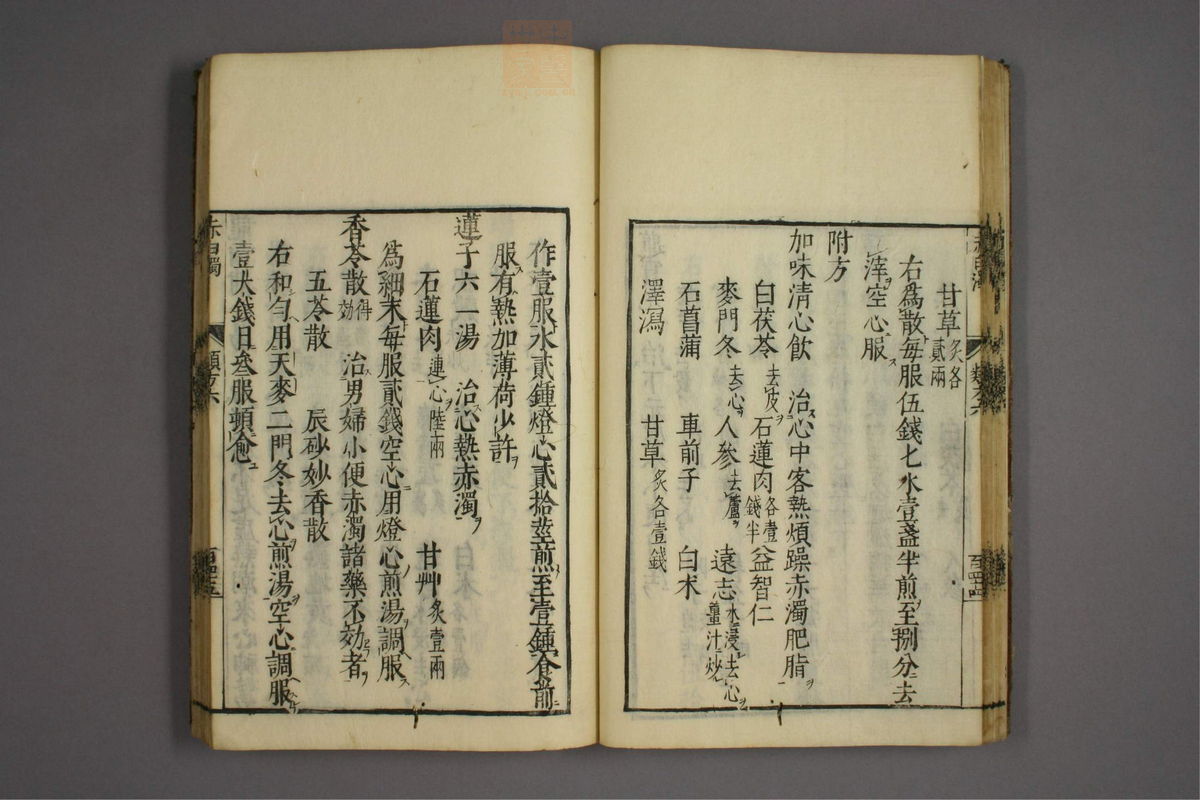 甘草炙各貳兩
右爲散每服伍錢匕水壹盞半煎至捌分去
滓空心服
附方
加味清心飲　治心中客熱煩躁赤濁肥脂
白茯苓去皮　石蓮肉各壹錢半　益智仁
麥門冬去心　人參去蘆　遠志水浸去心薑汁炒
石菖蒲　車前子　白朮
澤瀉　甘草炙各壹錢
作壹服水貳鍾燈心貳拾莖煎至壹鍾食前
服有熱加薄荷少許
蓮子六一湯　治心熱赤濁
石蓮肉連心陸兩　甘艸炙壹兩
爲細末每服貳錢空心用燈心煎湯調服
香苓散得効　治男婦小便赤濁諸藥不効者
五苓散　辰砂妙香散
右和勻用天麥二門冬去心煎湯空心調服
壹大錢日叄服頓愈
赤白濁　類方六